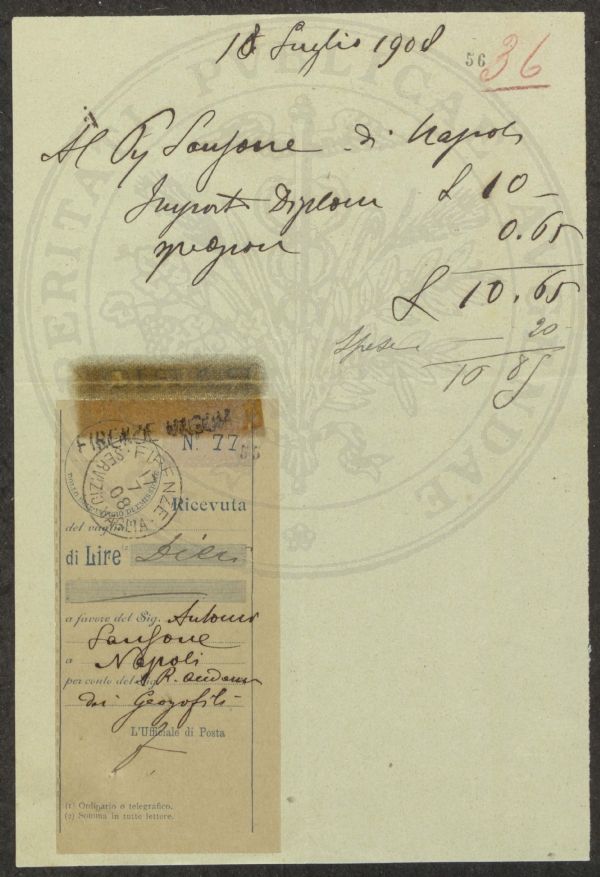 18 Luglio 1908
56 36
Al Pr Sansone di Napoli
Import Diploma £ 10 –
spedizion 0.65
£ 10.65
Spese 20
10 85
FIRENZE
N. 77
FIRENZE
SERVIZI
17 7 08
Ricevuta
del vaglia
di Lire Dieci
a favore del Sig. Antonio
Sansone
a Napoli
per conto del Sig. R. Accadem
dei Georgofili
L'Ufficiale di Posta
(1) Ordinario o telegrafico.
(2) Somma in tutte lettere.